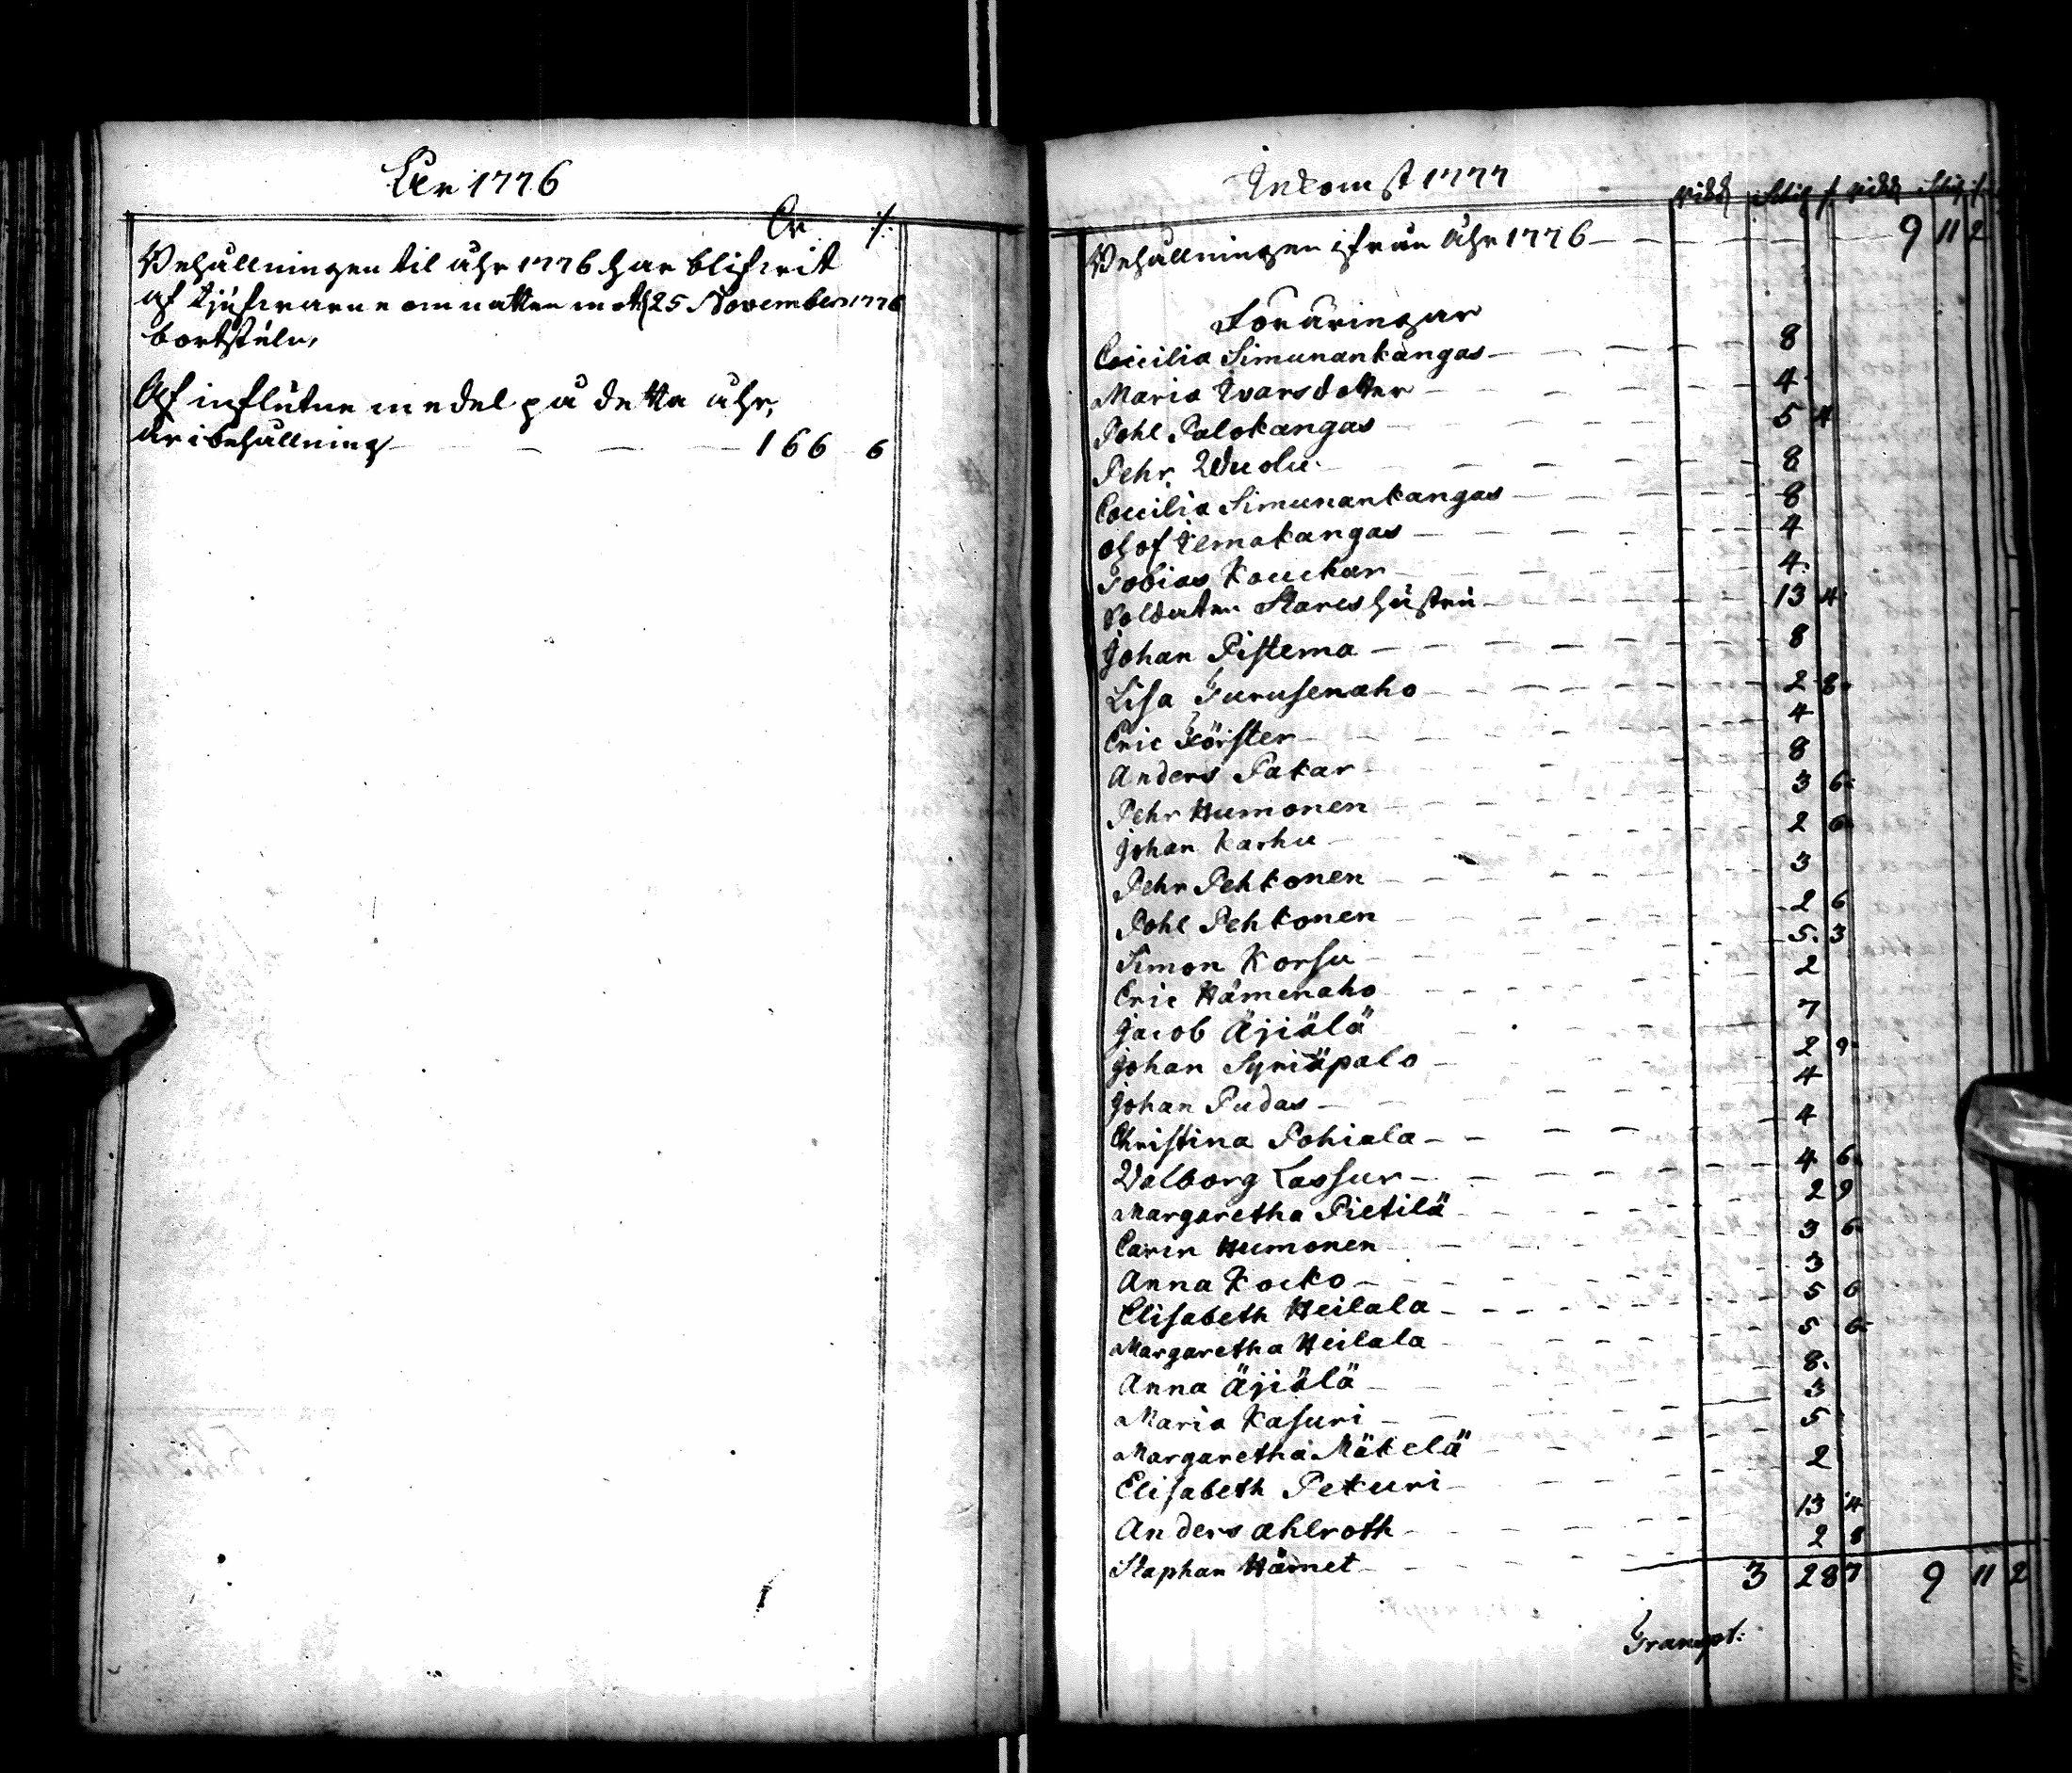 År 1776
Cr /.
Behållningen til åhr 1776 har blifwit
af tjufwarne om natten mot 25 November 1776
bortstuln,
Af influtne medel på detta åhr,
är i behållning 166 6
Inkomst 1777
Rikd Schig /. Rikd Schig /.
Behållningen ifrån Åhr 1776 9 11 2
Föräringar
Coicilia Simunankangas 8
Maria Ivarsdotter 4
Pohl Palokangas 5 4
Pehr Wuolu 8
Coicilia Simunankangas 8
Olof Jemakangas 4
Tobias Kouckar 4
Soldaten Starcs hustru 13 4
Johan Pistema 8
Lisa Turusenaho 2 8
Eric Förster 4
Anders Pakar 8
Pehr Humonen 3 6
Johan Karhu 2 6
Pehr Pehkonen 3
Pohl Pehkonen 2 6
Simon Korsu 5 3
Eric Hämenaho 2
Jacob Äjiälä 7
Johan Syriäpalo 2 9
Johan Pudas 4
Christina Pohiala 4
Walborg Lassur 4 6
Margaretha Pietilä 2 9
Carin Humonen 3 6
Anna Kocko 3
Elisabeth Heilala 5 6
Margaretha Heilala 5 6
Anna Äjiälä 8
Maria Kasuri 3
Margaretha Mäkelä 5
Elisabeth Pekuri 2
Anders Ahlroth 13 4
Staphan Härnet 2 8
3 28 7 9 11 2
Transpt: